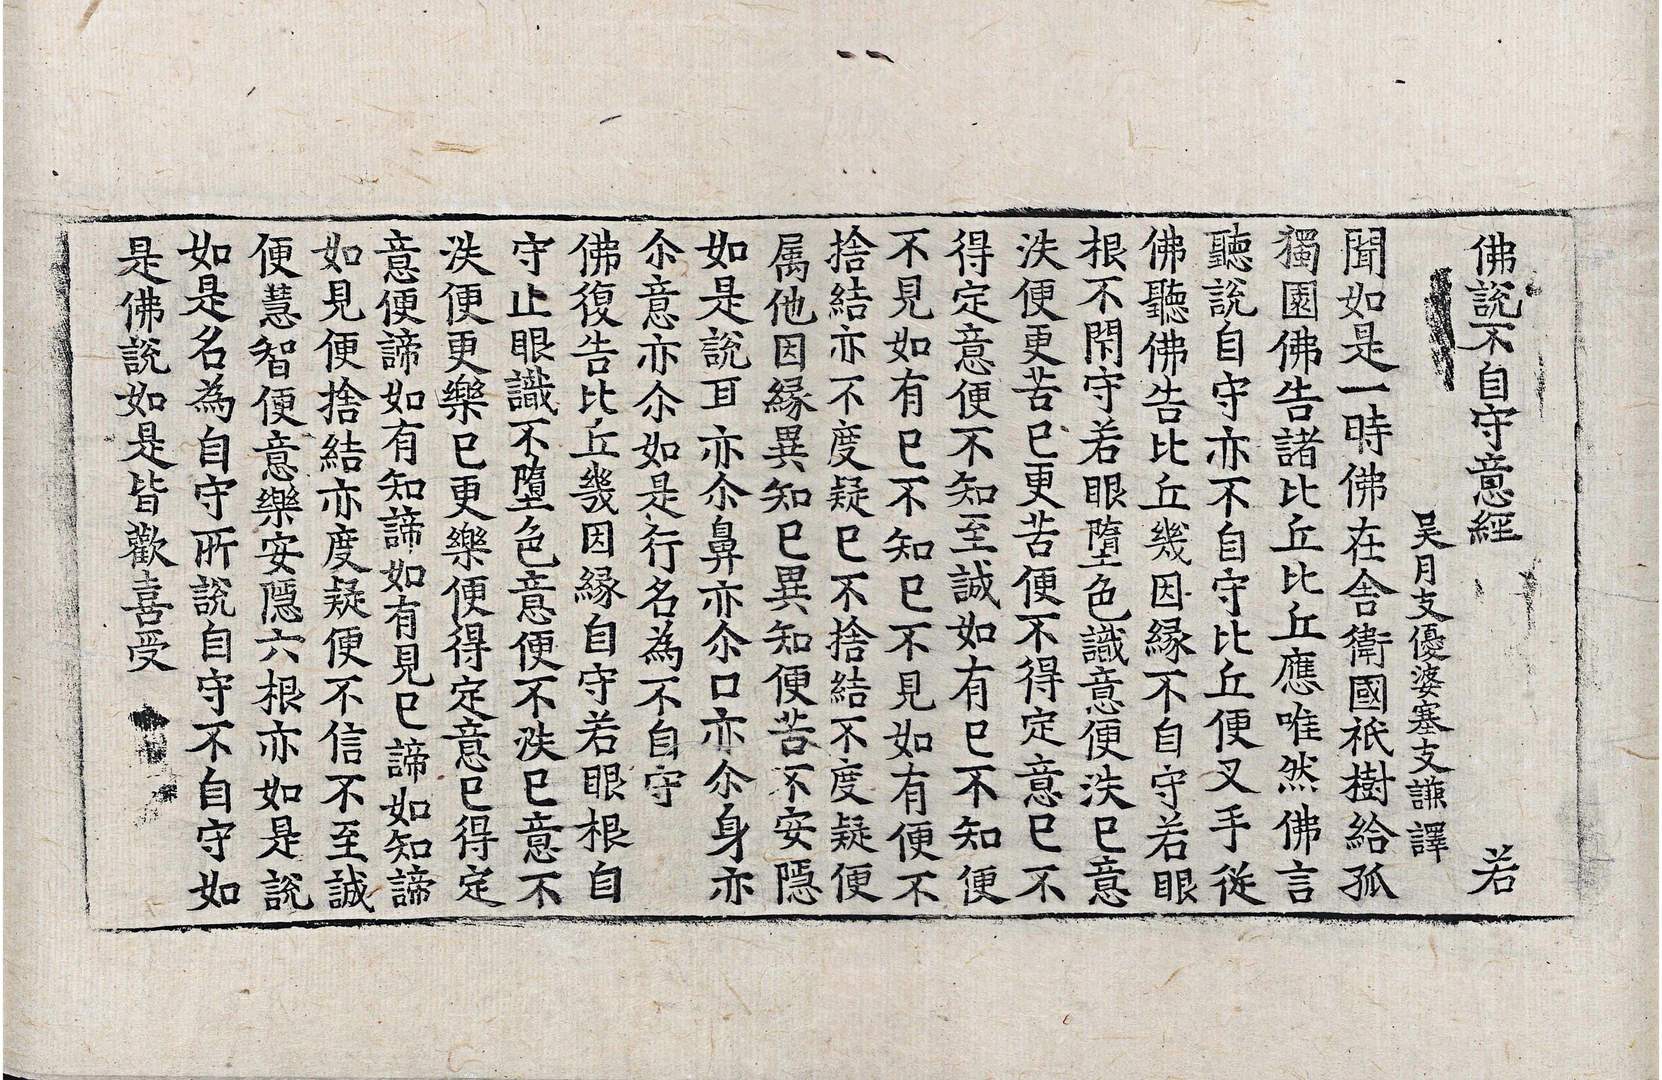 佛說不自守意經 若
吳月支優婆塞支謙譯
聞如是一時佛在舍衛國祇樹給孤
獨園佛告諸比丘比丘應唯然佛言
聽說自守亦不自守比丘便叉手從
佛聽佛告比丘幾因縁不自守若眼
根不閇守若眼墮色識意便泆已意
泆便更苦已更苦便不得定意已不
得定意便不知至誠如有已不知便
不見如有已不知已不見如有便不
捨結亦不度疑已不捨結不度疑便
属他因縁異知已異知便苦不安隱
如是說耳亦尒鼻亦尒口亦尒身亦
尒意亦尒如是行名為不自守
佛復告比丘幾因縁自守若眼根自
守止眼識不墮色意便不泆已意不
泆便更樂已更樂便得定意已得定
意便諦如有知諦如有見已諦如知諦
如見便捨結亦度疑便不信不至誠
便慧智便意樂安隱六根亦如是說
如是名為自守所說自守不自守如
是佛說如是皆歡喜受